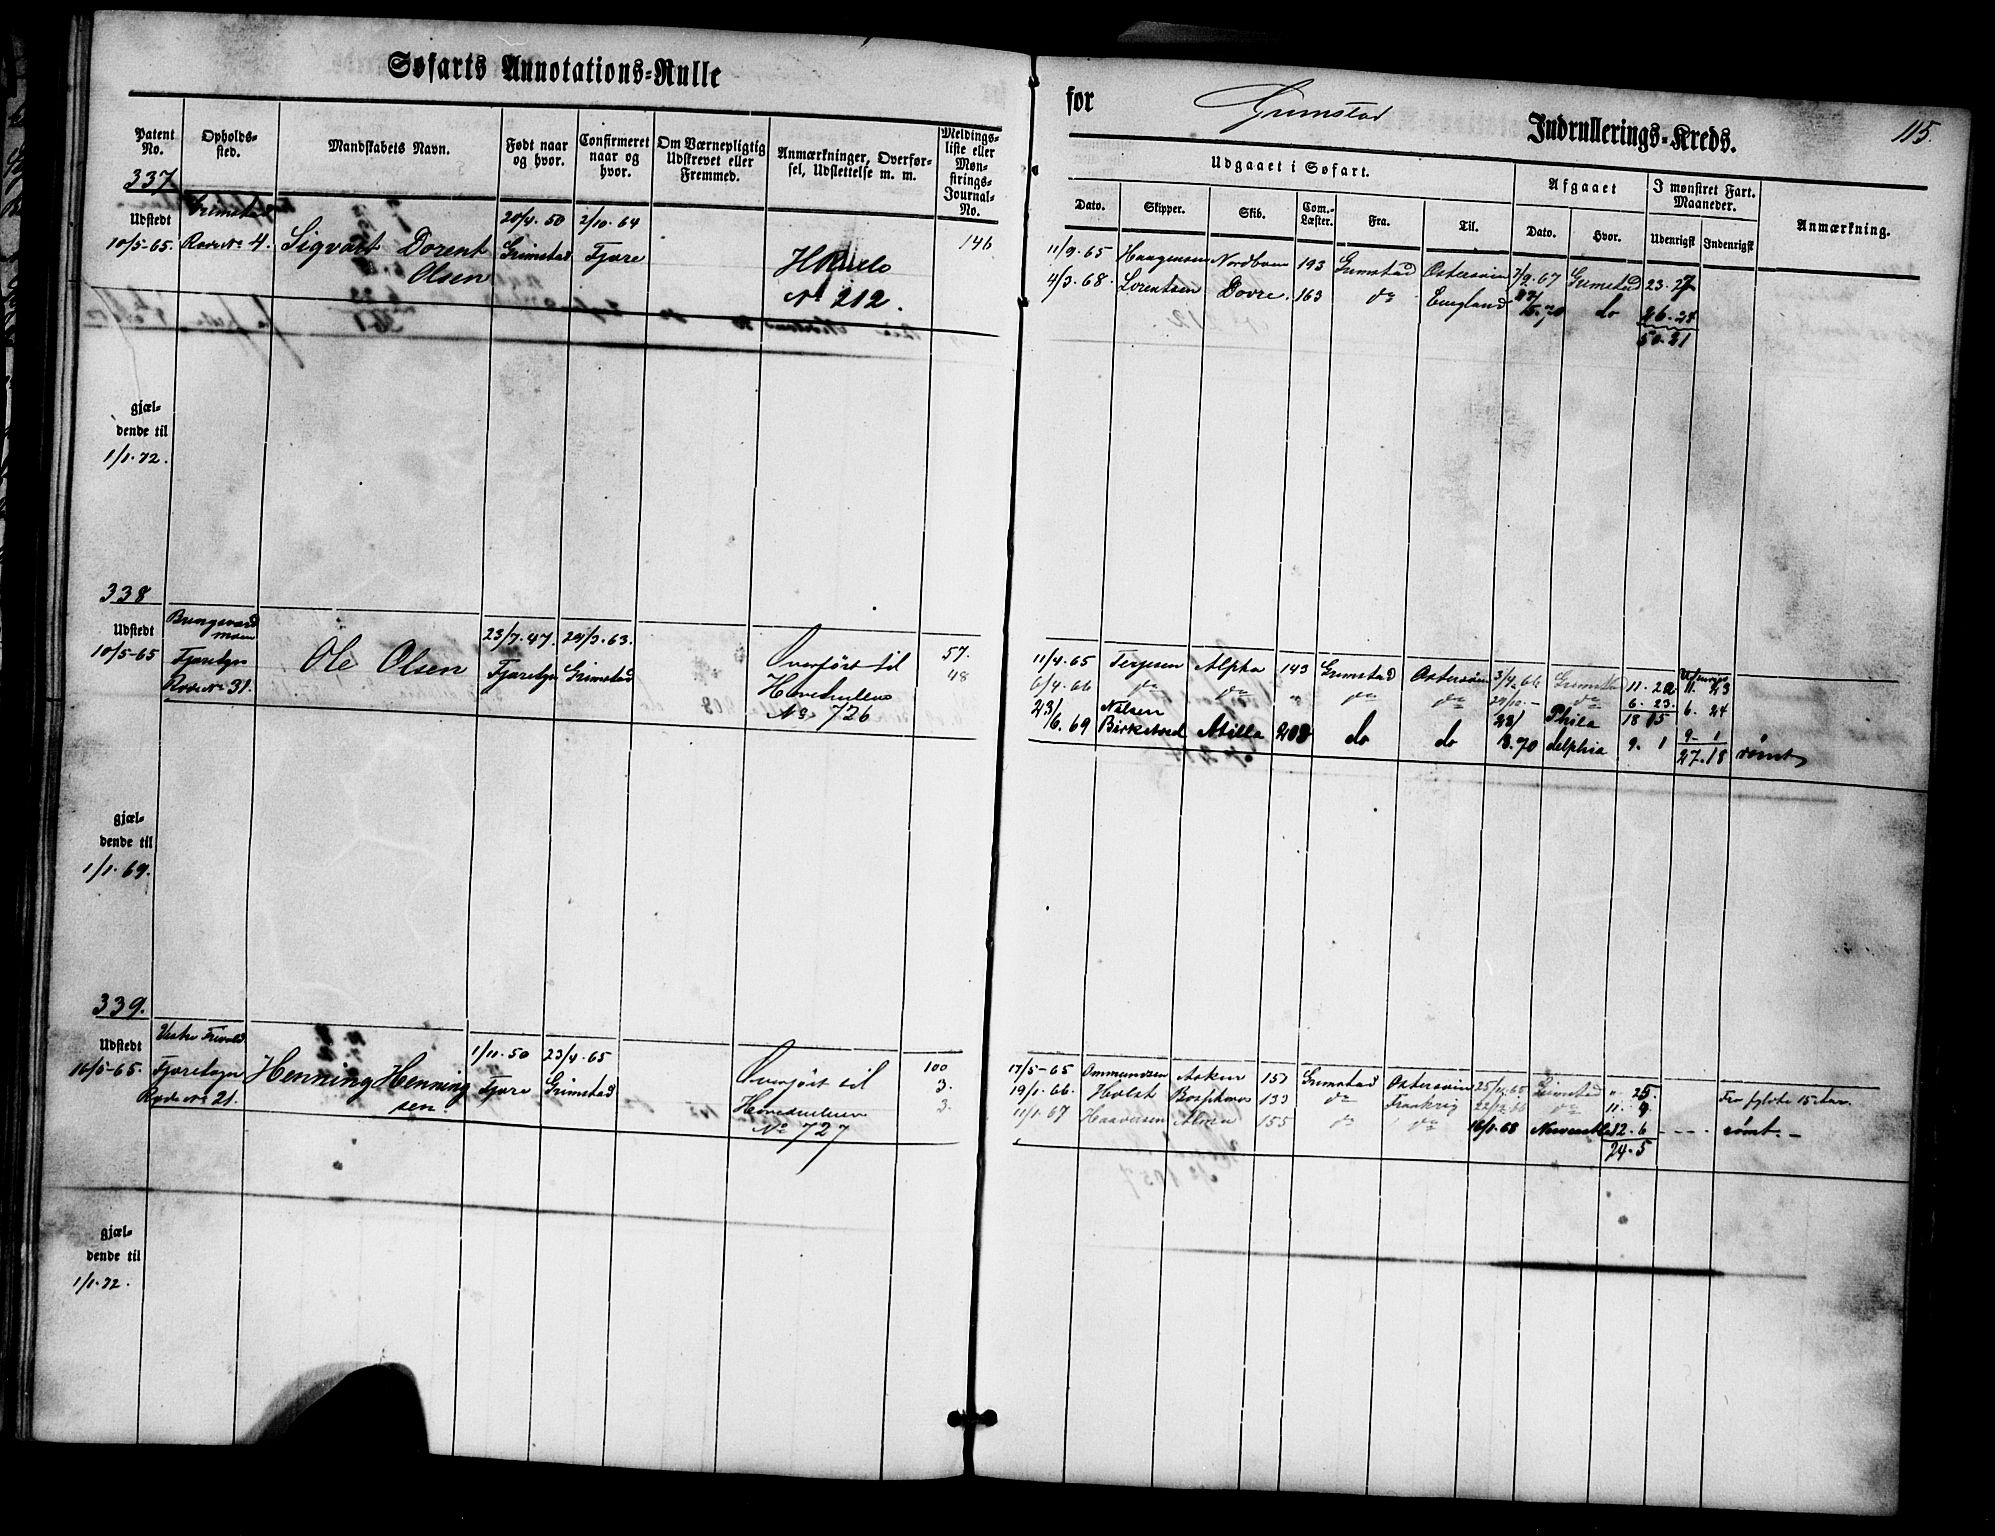 Søfarts Annotations-Rulle
for Grimstad Indrullerings-Kreds. 115.
Patent No.
Opholds-sted.
Mandskabets Navn.
Født naar og hvor.
Confirmeret naar og hvor.
Om Værnepligtig Udskrevet eller Fremmed.
Anmærkninger, Overfør-sel, Udslettelse m. m.
Meldings-liste eller Møn-strings-Journal-No.
Udgaaet i Søfart.
Afgaaet
I mønstret Fart. Maaneder.
Anmærkning.
Dato. Skipper. Skib. Com.-Læster. Fra. Til. Dato. Hvor. Udenrigsk Indenrigsk
337
Grimstad 20/4. 50 2/10. 64
Udstedt
10/5-65. Rode No 4. Sigvart Dorent Grimstad Fjære 146
Olsen
No 212.
11/9. 65 Haagensen 193 Grimstad Østersøen 7/9. 67 Grimstad 23. 27
4/3. 68. Lorentsen Dovre. 163 do England 70 do 26. 24
50. 21
gjæl-
dende til
1/1. 72.
338
Udstedt 23/7. 47. 29/3. 63.
10/5-65 Ole Olsen Overført til 57.
Rode No 31. Grimstad Hovedrullens 48
No 726
11/4. 65 Terjesen Alpha 143 Grimstad Østersøen 3/4. 66 Grimstad 11. 22 11. 23
6/4. 66 do do " do do do 6. 23. 6. 24
23/ Nilsen 28/ Phila 18 15
/6. 69 Birkedal Atilla 208 do do 70 delphia 9. 1 9. 1 rømt
27. 18
gjæl-
dende til
1/1. 69.
339.
Udstedt 1/11. 50 23/4. 65
16/5-65. Henning Henning Fjære Grimstad Overført til 100
Rode No 21. sen. Hovedrullens 3.
No 727 3.
17/5-65 Ommundsen 157 Grimstad Østersøen Grimstad " 25.
19/1. 66. Holst Bosphorus 133 do Frankrig do 11. 9. Før fyldte 15 Aar.
11/1. 67 Haaversen 155 do do 16/1. 68 12. 6 rømt. -
24. 5
gjæl-
dende til
1/1. 72.